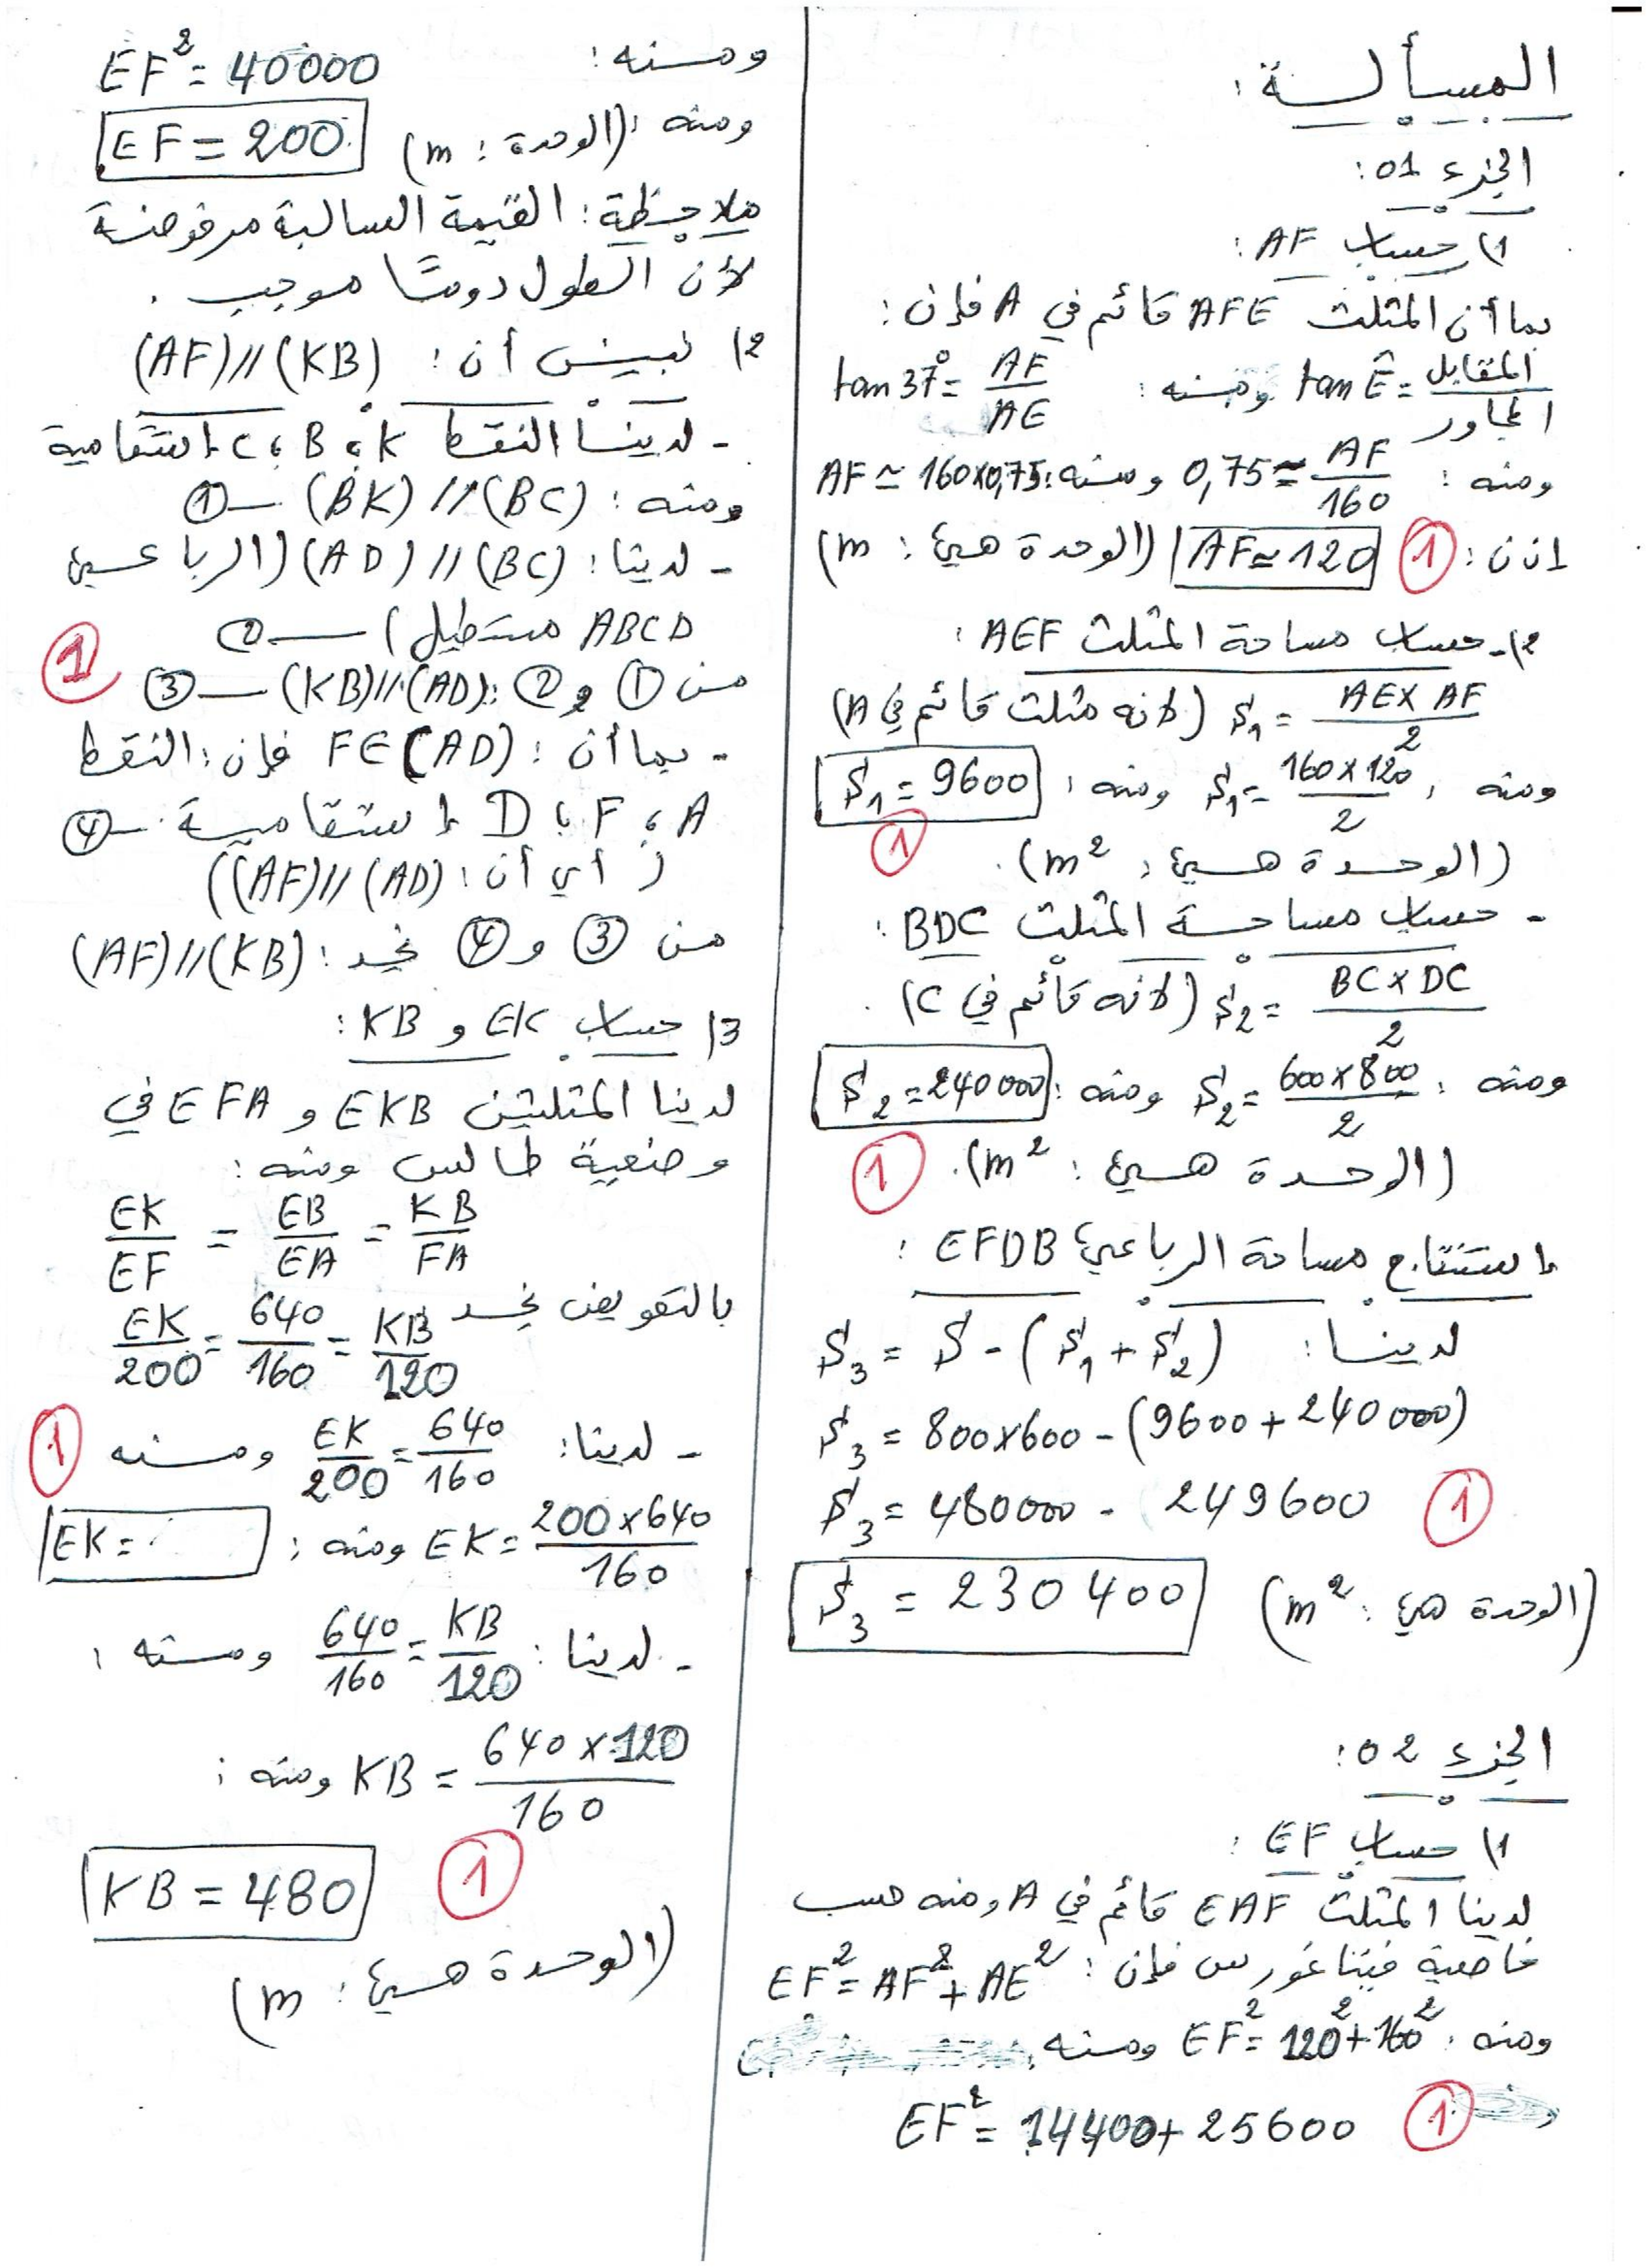 المسألة:
الجزء 01:
1) حساب AF:
بما أن المثلث AFE قائم في A فإن:
tan Ê = المقابل / المجاور ومنه: tan 37° = AF / AE
ومنه: 0,75 ≈ AF / 160 ومنه: AF ≃ 160×0,75
إذن: ① AF ≃ 120 (الوحدة هي: m)
2)- حساب مساحة المثلث AEF:
S₁ = AE × AF / 2 (لأنه مثلث قائم في A)
ومنه: S₁ = 160 × 120 / 2 ومنه: S₁ = 9600
① (الوحدة هي: m²).
- حساب مساحة المثلث BDC:
S₂ = BC × DC / 2 (لأنه قائم في C).
ومنه: S₂ = 600 × 800 / 2 ومنه: S₂ = 240000
(الوحدة هي: m²). ①
استنتاج مساحة الرباعي EFDB:
لدينا: S₃ = S - (S₁ + S₂)
S₃ = 800×600 - (9600 + 240000)
S₃ = 480000 - 249600 ①
S₃ = 230400 (الوحدة هي: m²)
الجزء 02:
1) حساب EF:
لدينا المثلث EAF قائم في A، ومنه حسب
خاصية فيثاغورس فإن: EF² = AF² + AE²
ومنه: EF² = 120² + 160² ومنه:
EF² = 14400 + 25600 ①
ومنه: EF² = 40000
ومنه: EF = 200 (الوحدة: m)
ملاحظة: القيمة السالبة مرفوضة
لأن الطول دومًا موجب.
2) نبين أن: (AF)//(KB)
- لدينا النقط K، B، C استقامية
ومنه: (BK)//(BC) — ①
- لدينا: (AD)//(BC) (الرباعي
ABCD مستطيل) — ②
من ① و ②: (KB)//(AD) — ③ ①
- بما أن: F∈(AD) فإن: النقط
A، F، D استقامية — ④
(أي أن: (AF)//(AD))
من ③ و ④ نجد: (AF)//(KB)
3) حساب EK و KB:
لدينا المثلثين EKB و EFA في
وضعية طالس ومنه:
EK / EF = EB / EA = KB / FA
بالتعويض نجد EK / 200 = 640 / 160 = KB / 120
- لدينا: EK / 200 = 640 / 160 ومنه ①
EK = 200×640 / 160 ومنه: EK =
- لدينا: 640 / 160 = KB / 120 ومنه:
KB = 640 × 120 / 160 ومنه:
KB = 480 ①
(الوحدة هي: m)